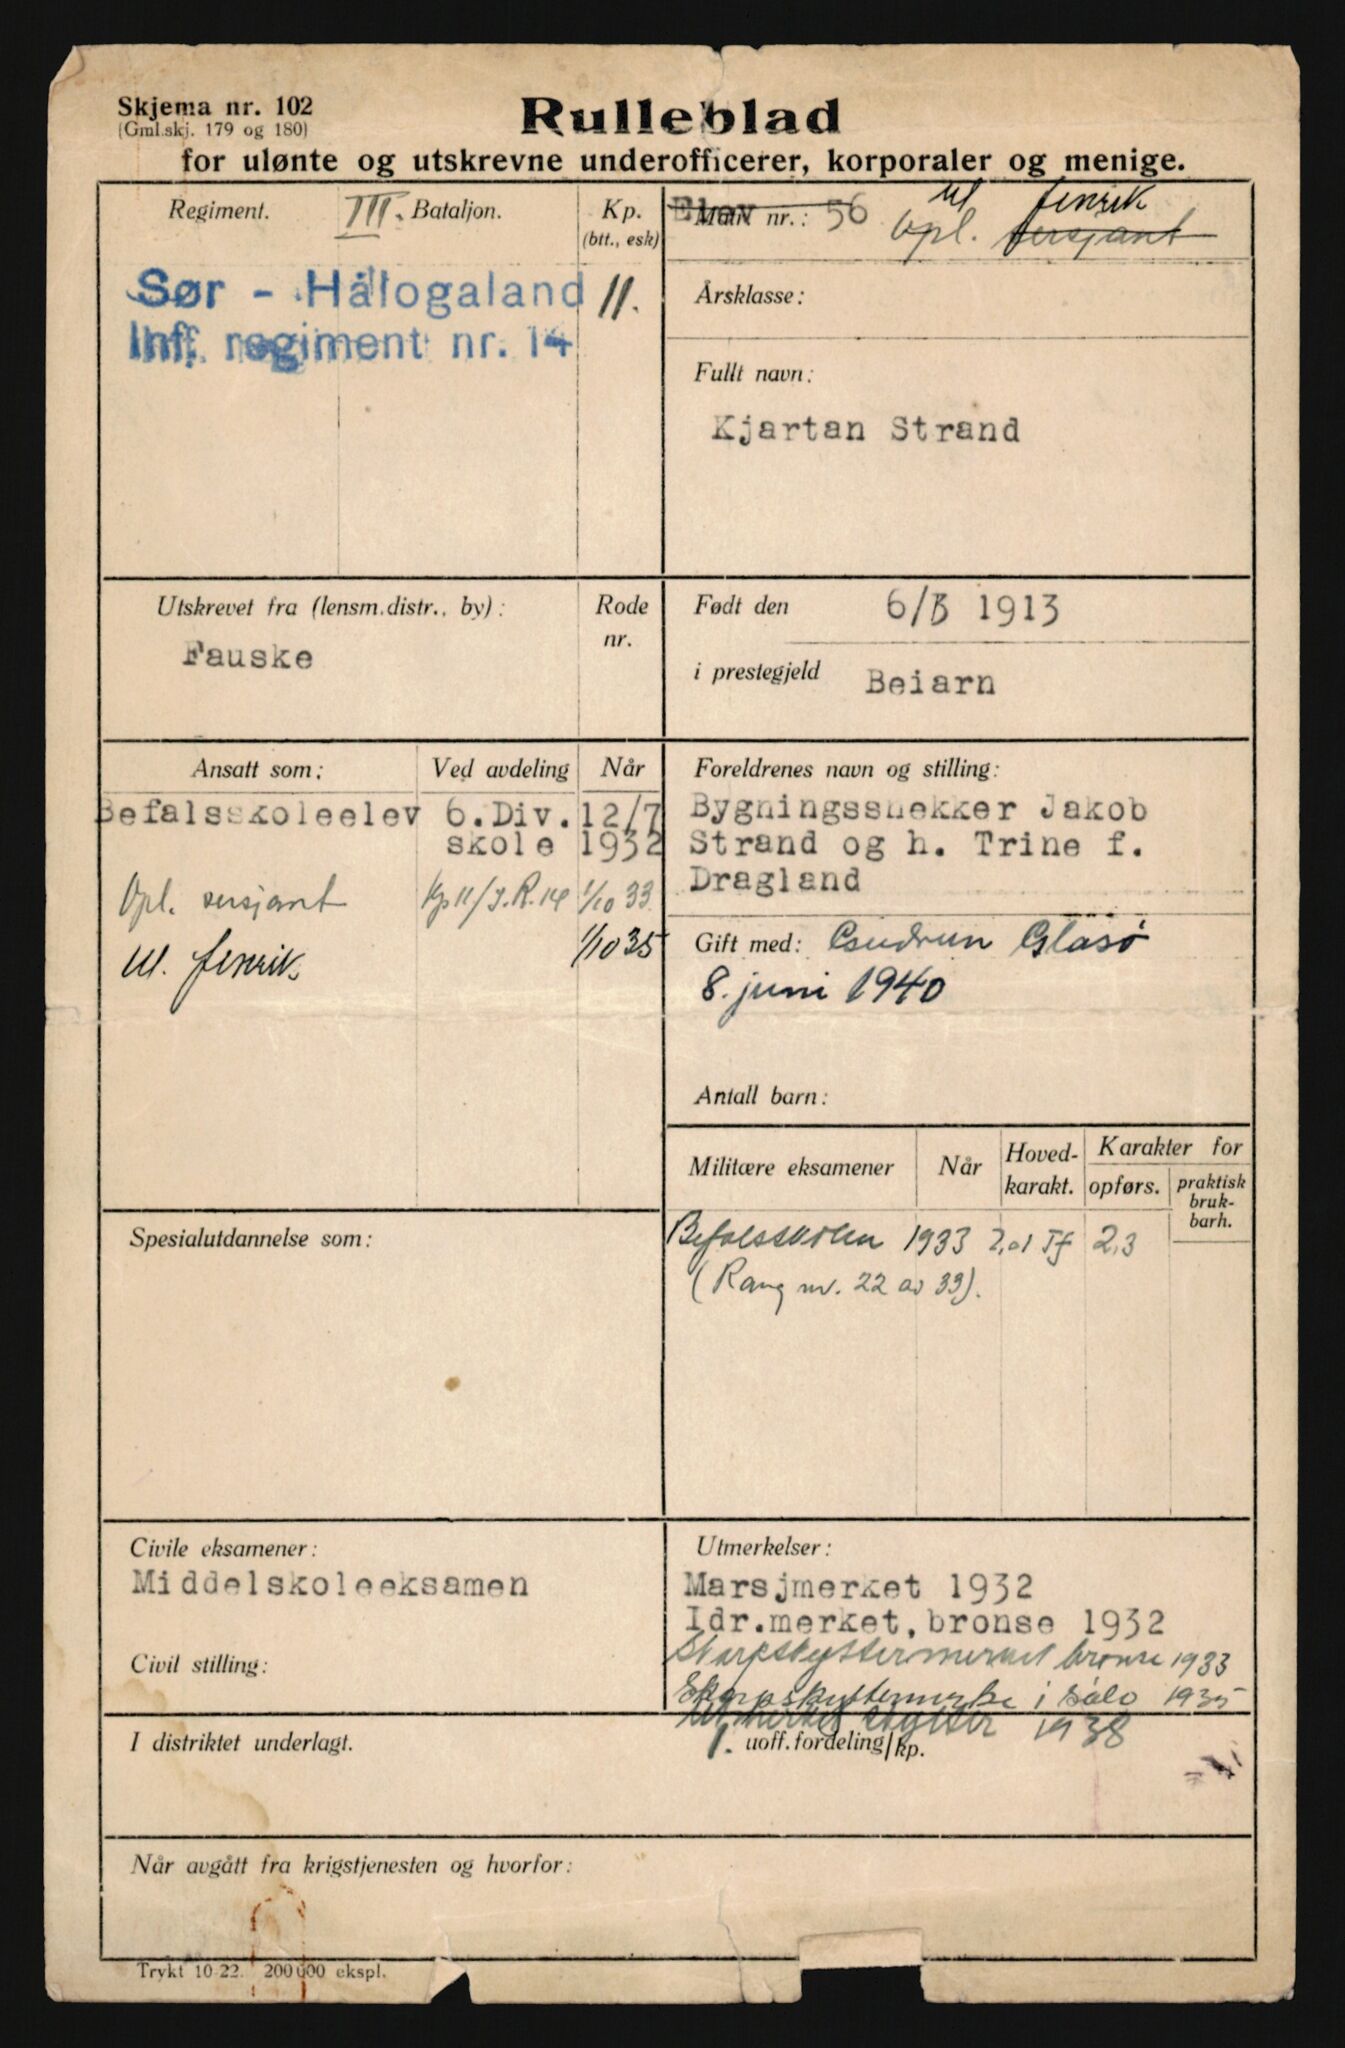 Skjema nr. 102
(Gml.skj. 179 og 180)
Rulleblad
for ulønte og utskrevne underofficerer, korporaler og menige.
Regiment.
III. Bataljon.
Kp.
(btt., esk)
Sør - Hålogaland
Inf. regiment nr. 14
11.
Elev nr.: 56
Vpl. sersjant
fenrik
Årsklasse:
Fullt navn:
Kjartan Strand
Utskrevet fra (lensm.distr., by):
Fauske
Rode
nr.
Født den 6/3 1913
i prestegjeld Beiarn
Ansatt som: Ved avdeling Når
Befalsskoleelev 6. Div. 12/7
skole 1932
Vpl. sersjant Kp 11/I.R.14 1/10 33
Ul. fenrik 1/10 35
Foreldrenes navn og stilling:
Bygningssnekker Jakob
Strand og h. Trine f.
Dragland
Gift med: Gudrun Glasø
8. juni 1940
Antall barn:
Militære eksamener Når Hoved-
karakt. Karakter for
opførs. praktisk
bruk-
barh.
Befalsskolen 1933 2,01 Tf 2,3
(Rang nr. 22 av 33).
Spesialutdannelse som:
Civile eksamener:
Middelskoleeksamen
Civil stilling:
Utmerkelser:
Marsjmerket 1932
Idr.merket, bronse 1932
Skarpskyttermerket bronse 1933
Skarpskyttermerke i sølv 1935
skytter 1938
I distriktet underlagt.
1. uoff. fordeling/kp.
Når avgått fra krigstjenesten og hvorfor:
Trykt 10-22. 200 000 ekspl.